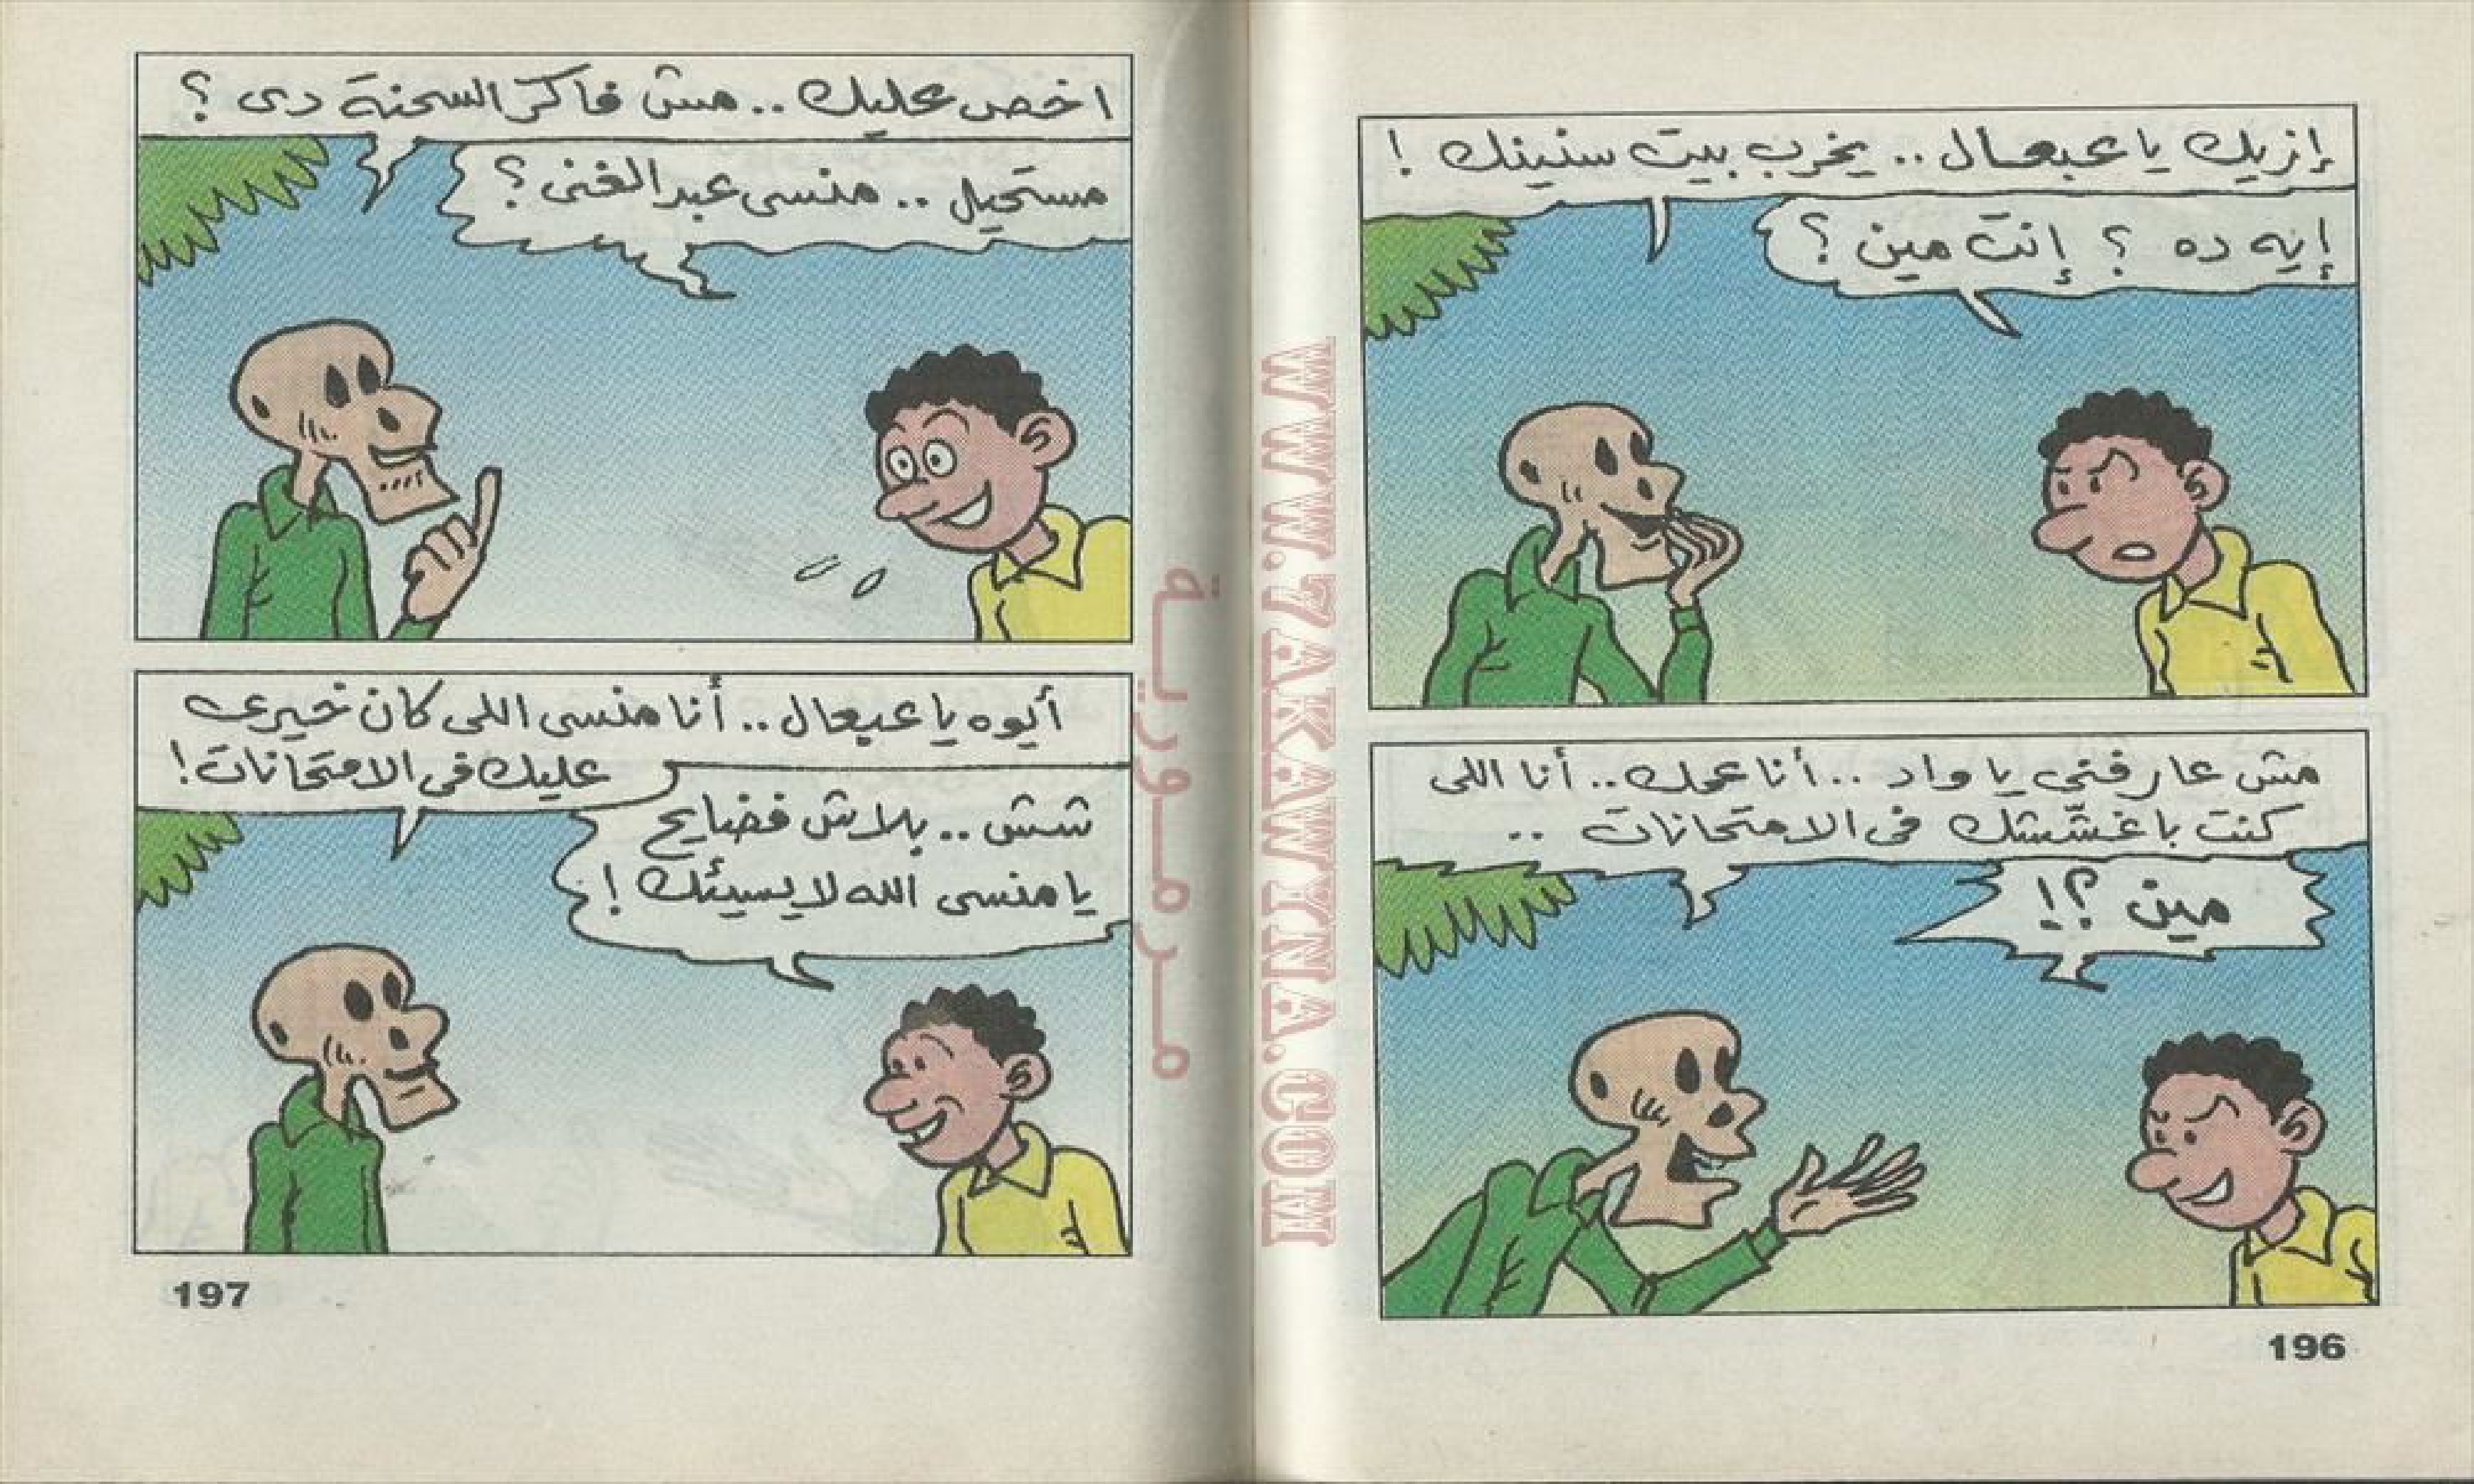 إزيك يا عبعال .. يخرب بيت سنينك !
إيه ده ؟ إنت مين ؟
مش عارفنى يا واد .. أنا عمك .. أنا اللى
كنت باغشّشك فى الامتحانات ..
مين ؟!
196
اخص عليك .. مش فاكر السحنة دى ؟
مستحيل .. منسى عبد الغنى ؟
أيوه يا عبعال .. أنا منسى اللى كان خيرى
عليك فى الامتحانات !
شش .. بلاش فضايح
يا منسى الله لا يسيئك !
197
مرمورية
WWW.7AKAWYNA.COM